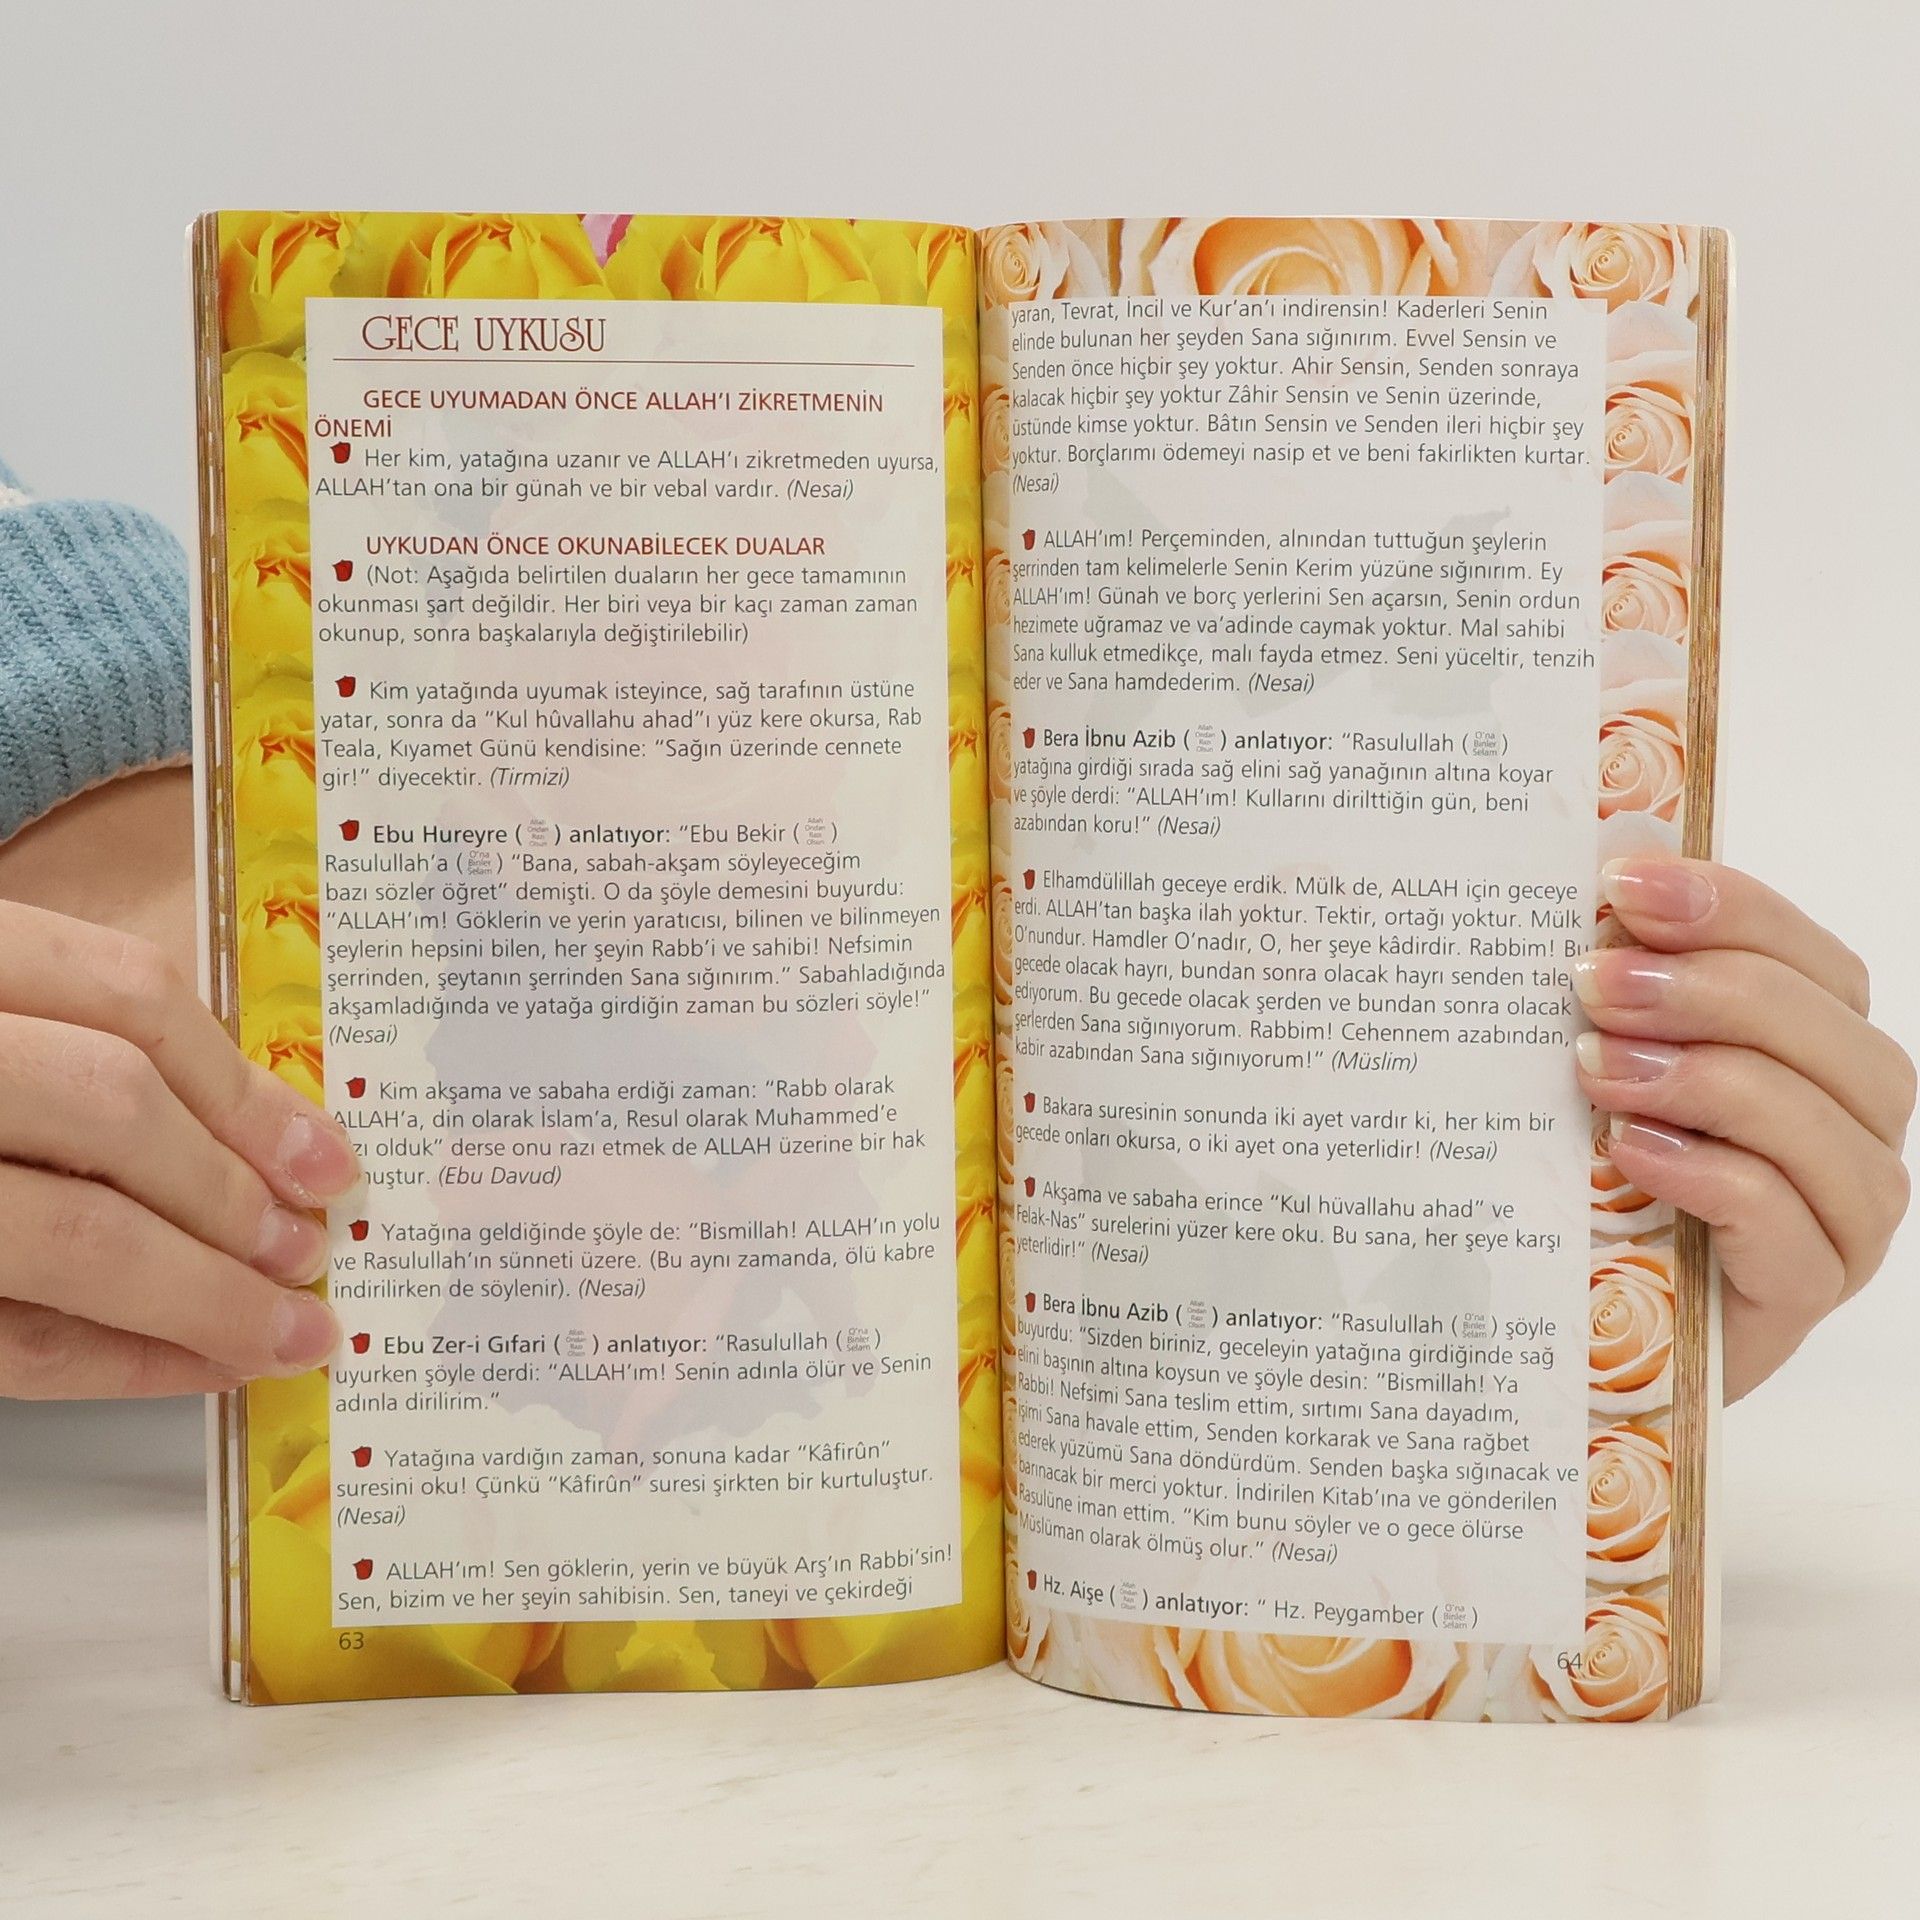 GECE UYKUSU
GECE UYUMADAN ÖNCE ALLAH'I ZİKRETMENİN
ÖNEMİ
Her kim, yatağına uzanır ve ALLAH'ı zikretmeden uyursa,
ALLAH'tan ona bir günah ve bir vebal vardır. (Nesai)
UYKUDAN ÖNCE OKUNABİLECEK DUALAR
(Not: Aşağıda belirtilen duaların her gece tamamının
okunması şart değildir. Her biri veya bir kaçı zaman zaman
okunup, sonra başkalarıyla değiştirilebilir)
Kim yatağında uyumak isteyince, sağ tarafının üstüne
yatar, sonra da "Kul hûvallahu ahad"ı yüz kere okursa, Rab
Teala, Kıyamet Günü kendisine: "Sağın üzerinde cennete
gir!" diyecektir. (Tirmizi)
Ebu Hureyre (Allah Ondan Razı Olsun) anlatıyor: "Ebu Bekir (Allah Ondan Razı Olsun)
Rasulullah'a (O'na Binler Selam) "Bana, sabah-akşam söyleyeceğim
bazı sözler öğret" demişti. O da şöyle demesini buyurdu:
"ALLAH'ım! Göklerin ve yerin yaratıcısı, bilinen ve bilinmeyen
şeylerin hepsini bilen, her şeyin Rabb'i ve sahibi! Nefsimin
şerrinden, şeytanın şerrinden Sana sığınırım." Sabahladığında
akşamladığında ve yatağa girdiğin zaman bu sözleri söyle!"
(Nesai)
Kim akşama ve sabaha erdiği zaman: "Rabb olarak
ALLAH'a, din olarak İslam'a, Resul olarak Muhammed'e
olduk" derse onu razı etmek de ALLAH üzerine bir hak
(Ebu Davud)
Yatağına geldiğinde şöyle de: "Bismillah! ALLAH'ın yolu
ve Rasulullah'ın sünneti üzere. (Bu aynı zamanda, ölü kabre
indirilirken de söylenir). (Nesai)
Ebu Zer-i Gıfari (Allah Ondan Razı Olsun) anlatıyor: "Rasulullah (O'na Binler Selam)
uyurken şöyle derdi: "ALLAH'ım! Senin adınla ölür ve Senin
adınla dirilirim."
Yatağına vardığın zaman, sonuna kadar "Kâfirûn"
suresini oku! Çünkü "Kâfirûn" suresi şirkten bir kurtuluştur.
(Nesai)
ALLAH'ım! Sen göklerin, yerin ve büyük Arş'ın Rabbi'sin!
Sen, bizim ve her şeyin sahibisin. Sen, taneyi ve çekirdeği
63
yaran, Tevrat, İncil ve Kur'an'ı indirensin! Kaderleri Senin
elinde bulunan her şeyden Sana sığınırım. Evvel Sensin ve
Senden önce hiçbir şey yoktur. Ahir Sensin, Senden sonraya
kalacak hiçbir şey yoktur Zâhir Sensin ve Senin üzerinde,
üstünde kimse yoktur. Bâtın Sensin ve Senden ileri hiçbir şey
yoktur. Borçlarımı ödemeyi nasip et ve beni fakirlikten kurtar.
(Nesai)
ALLAH'ım! Perçeminden, alnından tuttuğun şeylerin
şerrinden tam kelimelerle Senin Kerim yüzüne sığınırım. Ey
ALLAH'ım! Günah ve borç yerlerini Sen açarsın, Senin ordun
hezimete uğramaz ve va'adinde caymak yoktur. Mal sahibi
Sana kulluk etmedikçe, malı fayda etmez. Seni yüceltir, tenzih
eder ve Sana hamdederim. (Nesai)
Bera İbnu Azib (Allah Ondan Razı Olsun) anlatıyor: "Rasulullah (O'na Binler Selam)
yatağına girdiği sırada sağ elini sağ yanağının altına koyar
ve şöyle derdi: "ALLAH'ım! Kullarını dirilttiğin gün, beni
azabından koru!" (Nesai)
Elhamdülillah geceye erdik. Mülk de, ALLAH için geceye
erdi. ALLAH'tan başka ilah yoktur. Tektir, ortağı yoktur. Mülk
O'nundur. Hamdler O'nadır, O, her şeye kâdirdir. Rabbim! Bu
gecede olacak hayrı, bundan sonra olacak hayrı senden
ediyorum. Bu gecede olacak şerden ve bundan sonra olacak
şerlerden Sana sığınıyorum. Rabbim! Cehennem azabından,
kabir azabından Sana sığınıyorum!" (Müslim)
Bakara suresinin sonunda iki ayet vardır ki, her kim bir
gecede onları okursa, o iki ayet ona yeterlidir! (Nesai)
Akşama ve sabaha erince "Kul hüvallahu ahad" ve
Felak-Nas" surelerini yüzer kere oku. Bu sana, her şeye karşı
yeterlidir!" (Nesai)
Bera İbnu Azib (Allah Ondan Razı Olsun) anlatıyor: "Rasulullah (O'na Binler Selam) şöyle
buyurdu: "Sizden biriniz, geceleyin yatağına girdiğinde sağ
elini başının altına koysun ve şöyle desin: "Bismillah! Ya
Rabbi! Nefsimi Sana teslim ettim, sırtımı Sana dayadım,
işimi Sana havale ettim, Senden korkarak ve Sana rağbet
ederek yüzümü Sana döndürdüm. Senden başka sığınacak ve
barınacak bir merci yoktur. İndirilen Kitab'ına ve gönderilen
Rasulüne iman ettim. "Kim bunu söyler ve o gece ölürse
Müslüman olarak ölmüş olur." (Nesai)
Hz. Aişe (Allah Ondan Razı Olsun) anlatıyor: " Hz. Peygamber (O'na Binler Selam)
64